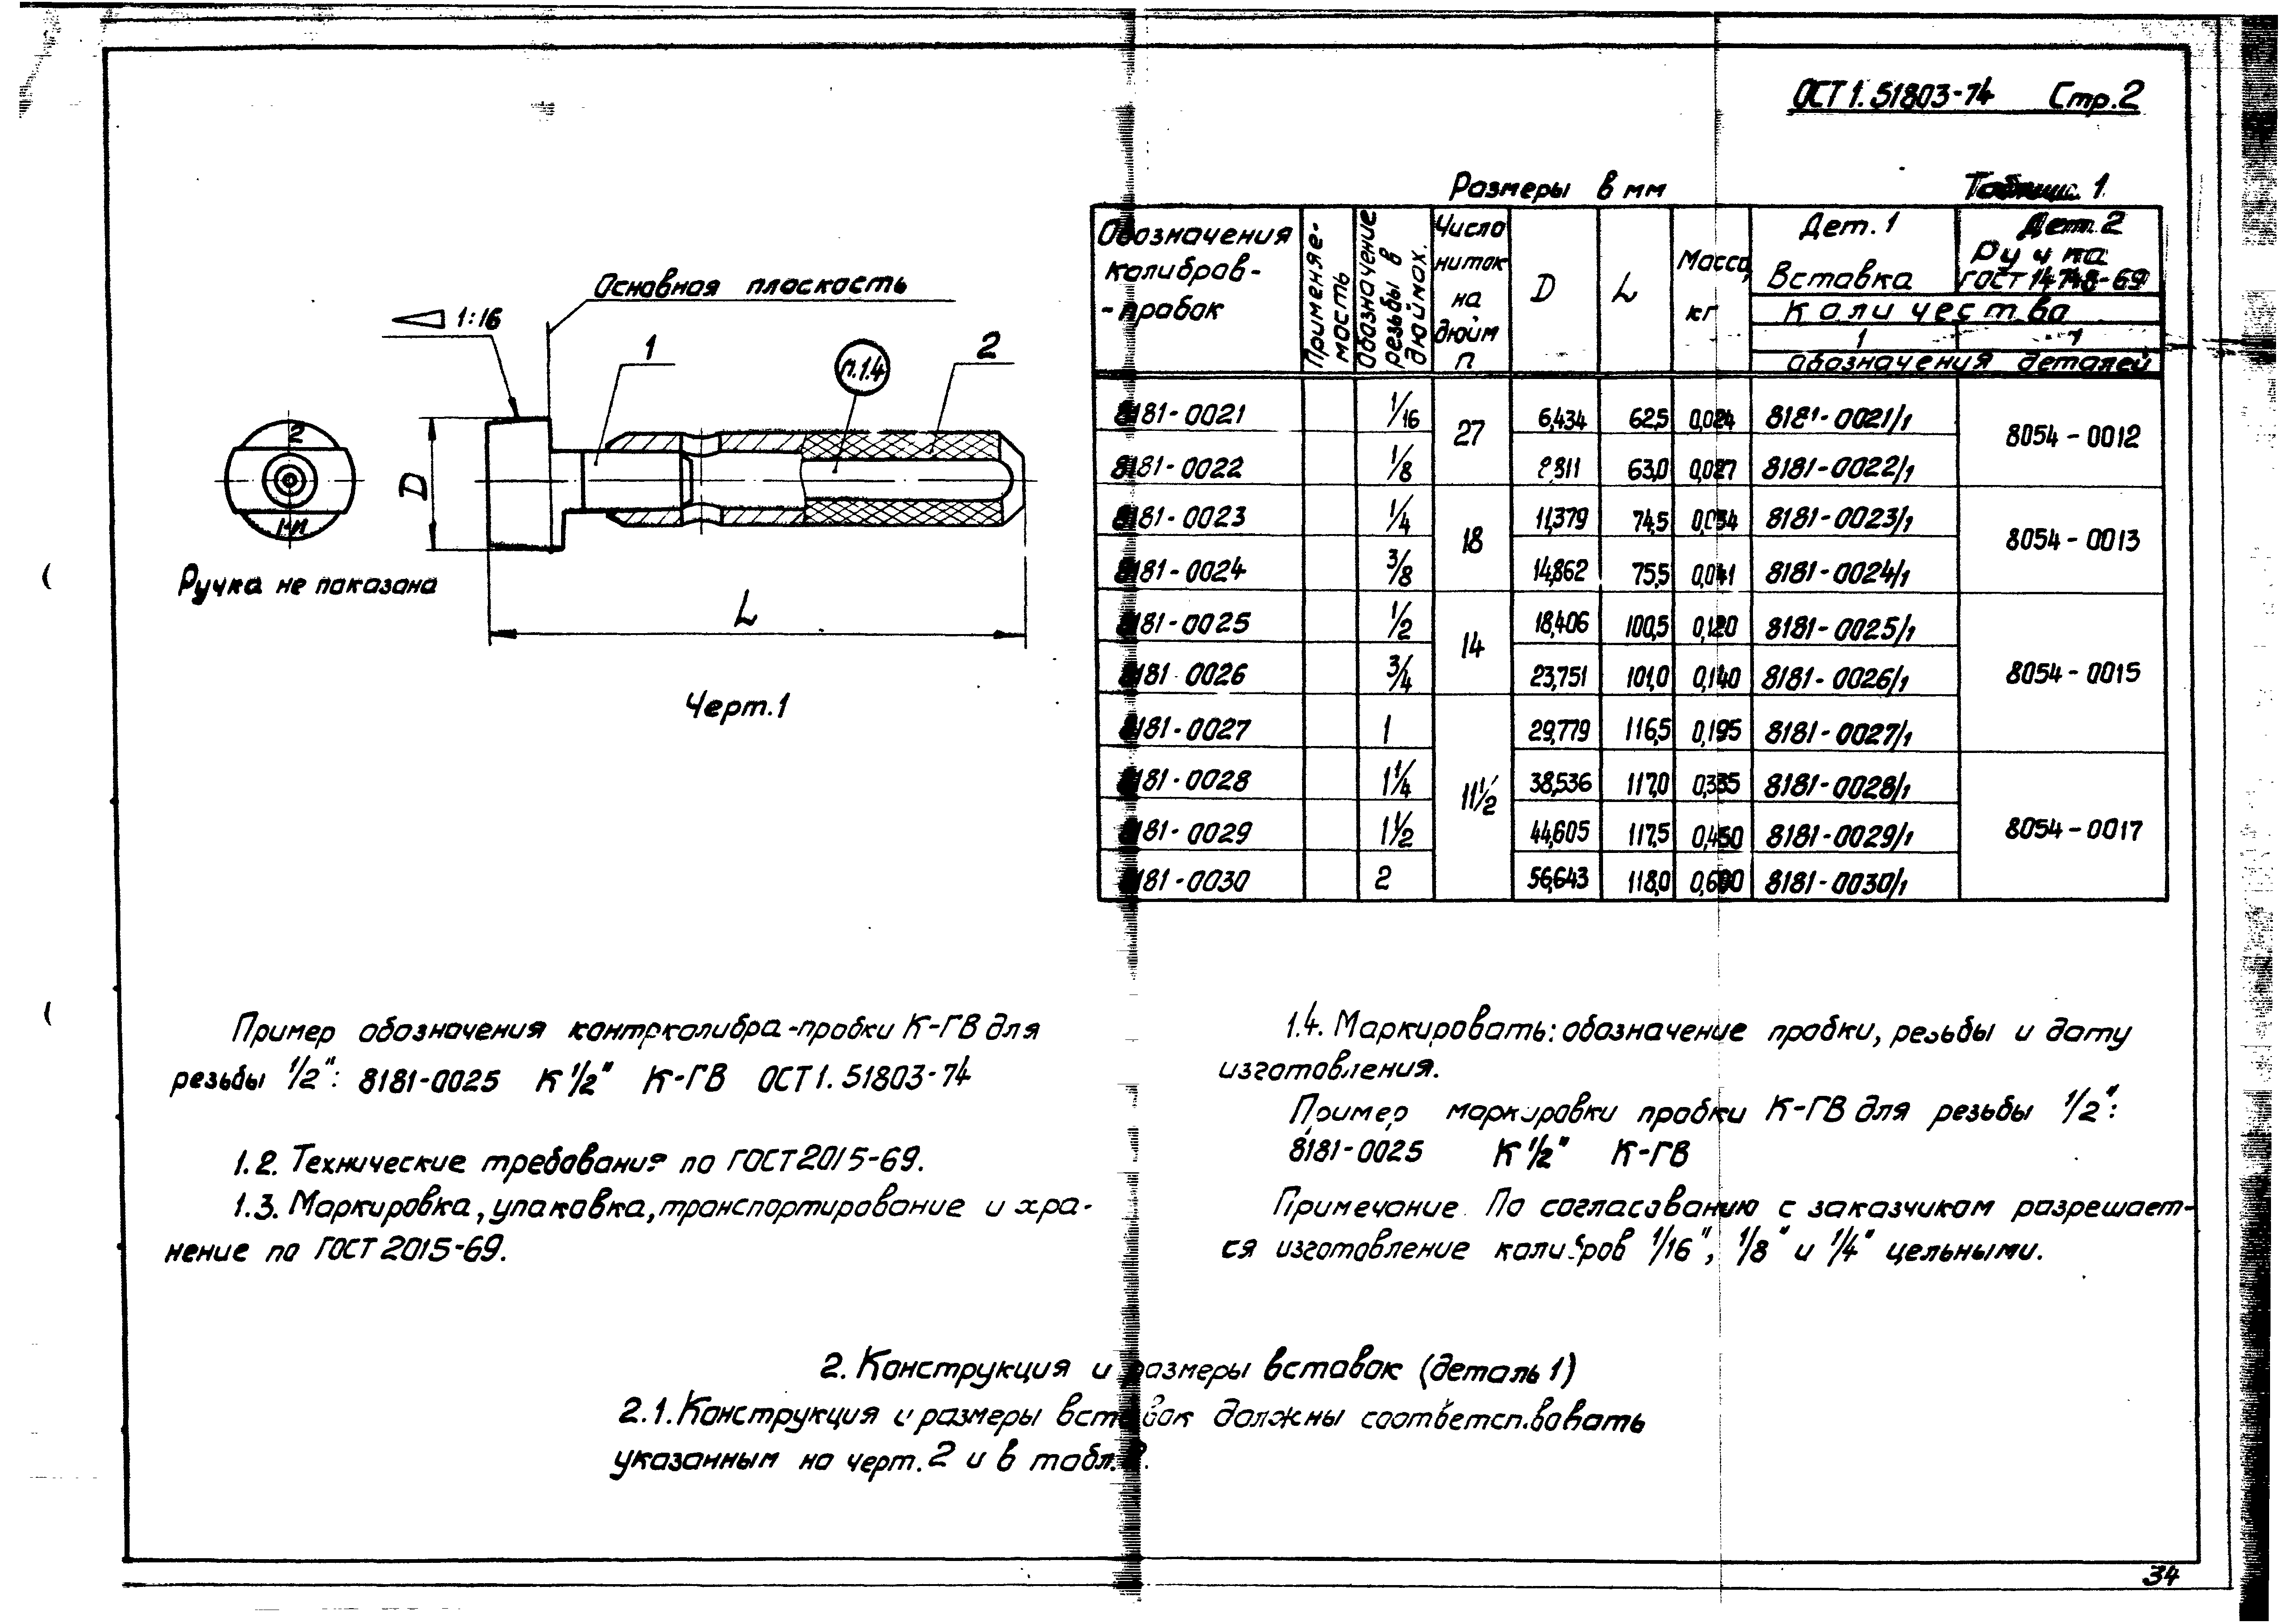 ОСТ 1.51803-74 Стр.2
Размеры в мм
Таблица 1
Обозначения калибров--пробок
Применяемость
Обозначение резьбы в дюймах.
Число ниток на дюйм n
D
L
Масса, кг
Дет. 1 Вставка
Дет. 2 Ручка ГОСТ 14748-69
Количество
1 1
Обозначения деталей
8181-0021 1/16 27 6,434 62,5 0,024 8181-0021/1 8054-0012
8181-0022 1/8 63,0 0,027 8181-0022/1
8181-0023 1/4 18 11,379 74,5 0,034 8181-0023/1 8054-0013
8181-0024 3/8 14,862 75,5 0,041 8181-0024/1
8181-0025 1/2 14 18,406 100,5 0,120 8181-0025/1 8054-0015
8181-0026 3/4 23,751 101,0 0,140 8181-0026/1
8181-0027 1 11 1/2 29,779 116,5 0,195 8181-0027/1
8181-0028 1 1/4 38,536 117,0 0,335 8181-0028/1 8054-0017
8181-0029 1 1/2 44,605 117,5 0,450 8181-0029/1
8181-0030 2 56,643 118,0 8181-0030/1
Основная плоскость
1:16
1
п.1.4
2
D
2
L
Ручка не показана
Черт.1
Пример обозначения контркалибра-пробки К-ГВ для
резьбы 1/2": 8181-0025 К 1/2" К-ГВ ОСТ 1.51803-74
1.2. Технические требования по ГОСТ 2015-69.
1.3. Маркировка, упаковка, транспортирование и хра-
нение по ГОСТ 2015-69.
1.4. Маркировать: обозначение пробки, резьбы и дату
изготовления.
Пример маркировки пробки К-ГВ для резьбы 1/2":
8181-0025 К 1/2" К-ГВ
Примечание. По согласованию с заказчиком разрешает-
ся изготовление калибров 1/16", 1/8" и 1/4" цельными.
2. Конструкция и размеры вставок (деталь 1)
2.1. Конструкция и размеры вставок должны соответствовать
указанным на черт. 2 и в табл. 2.
34